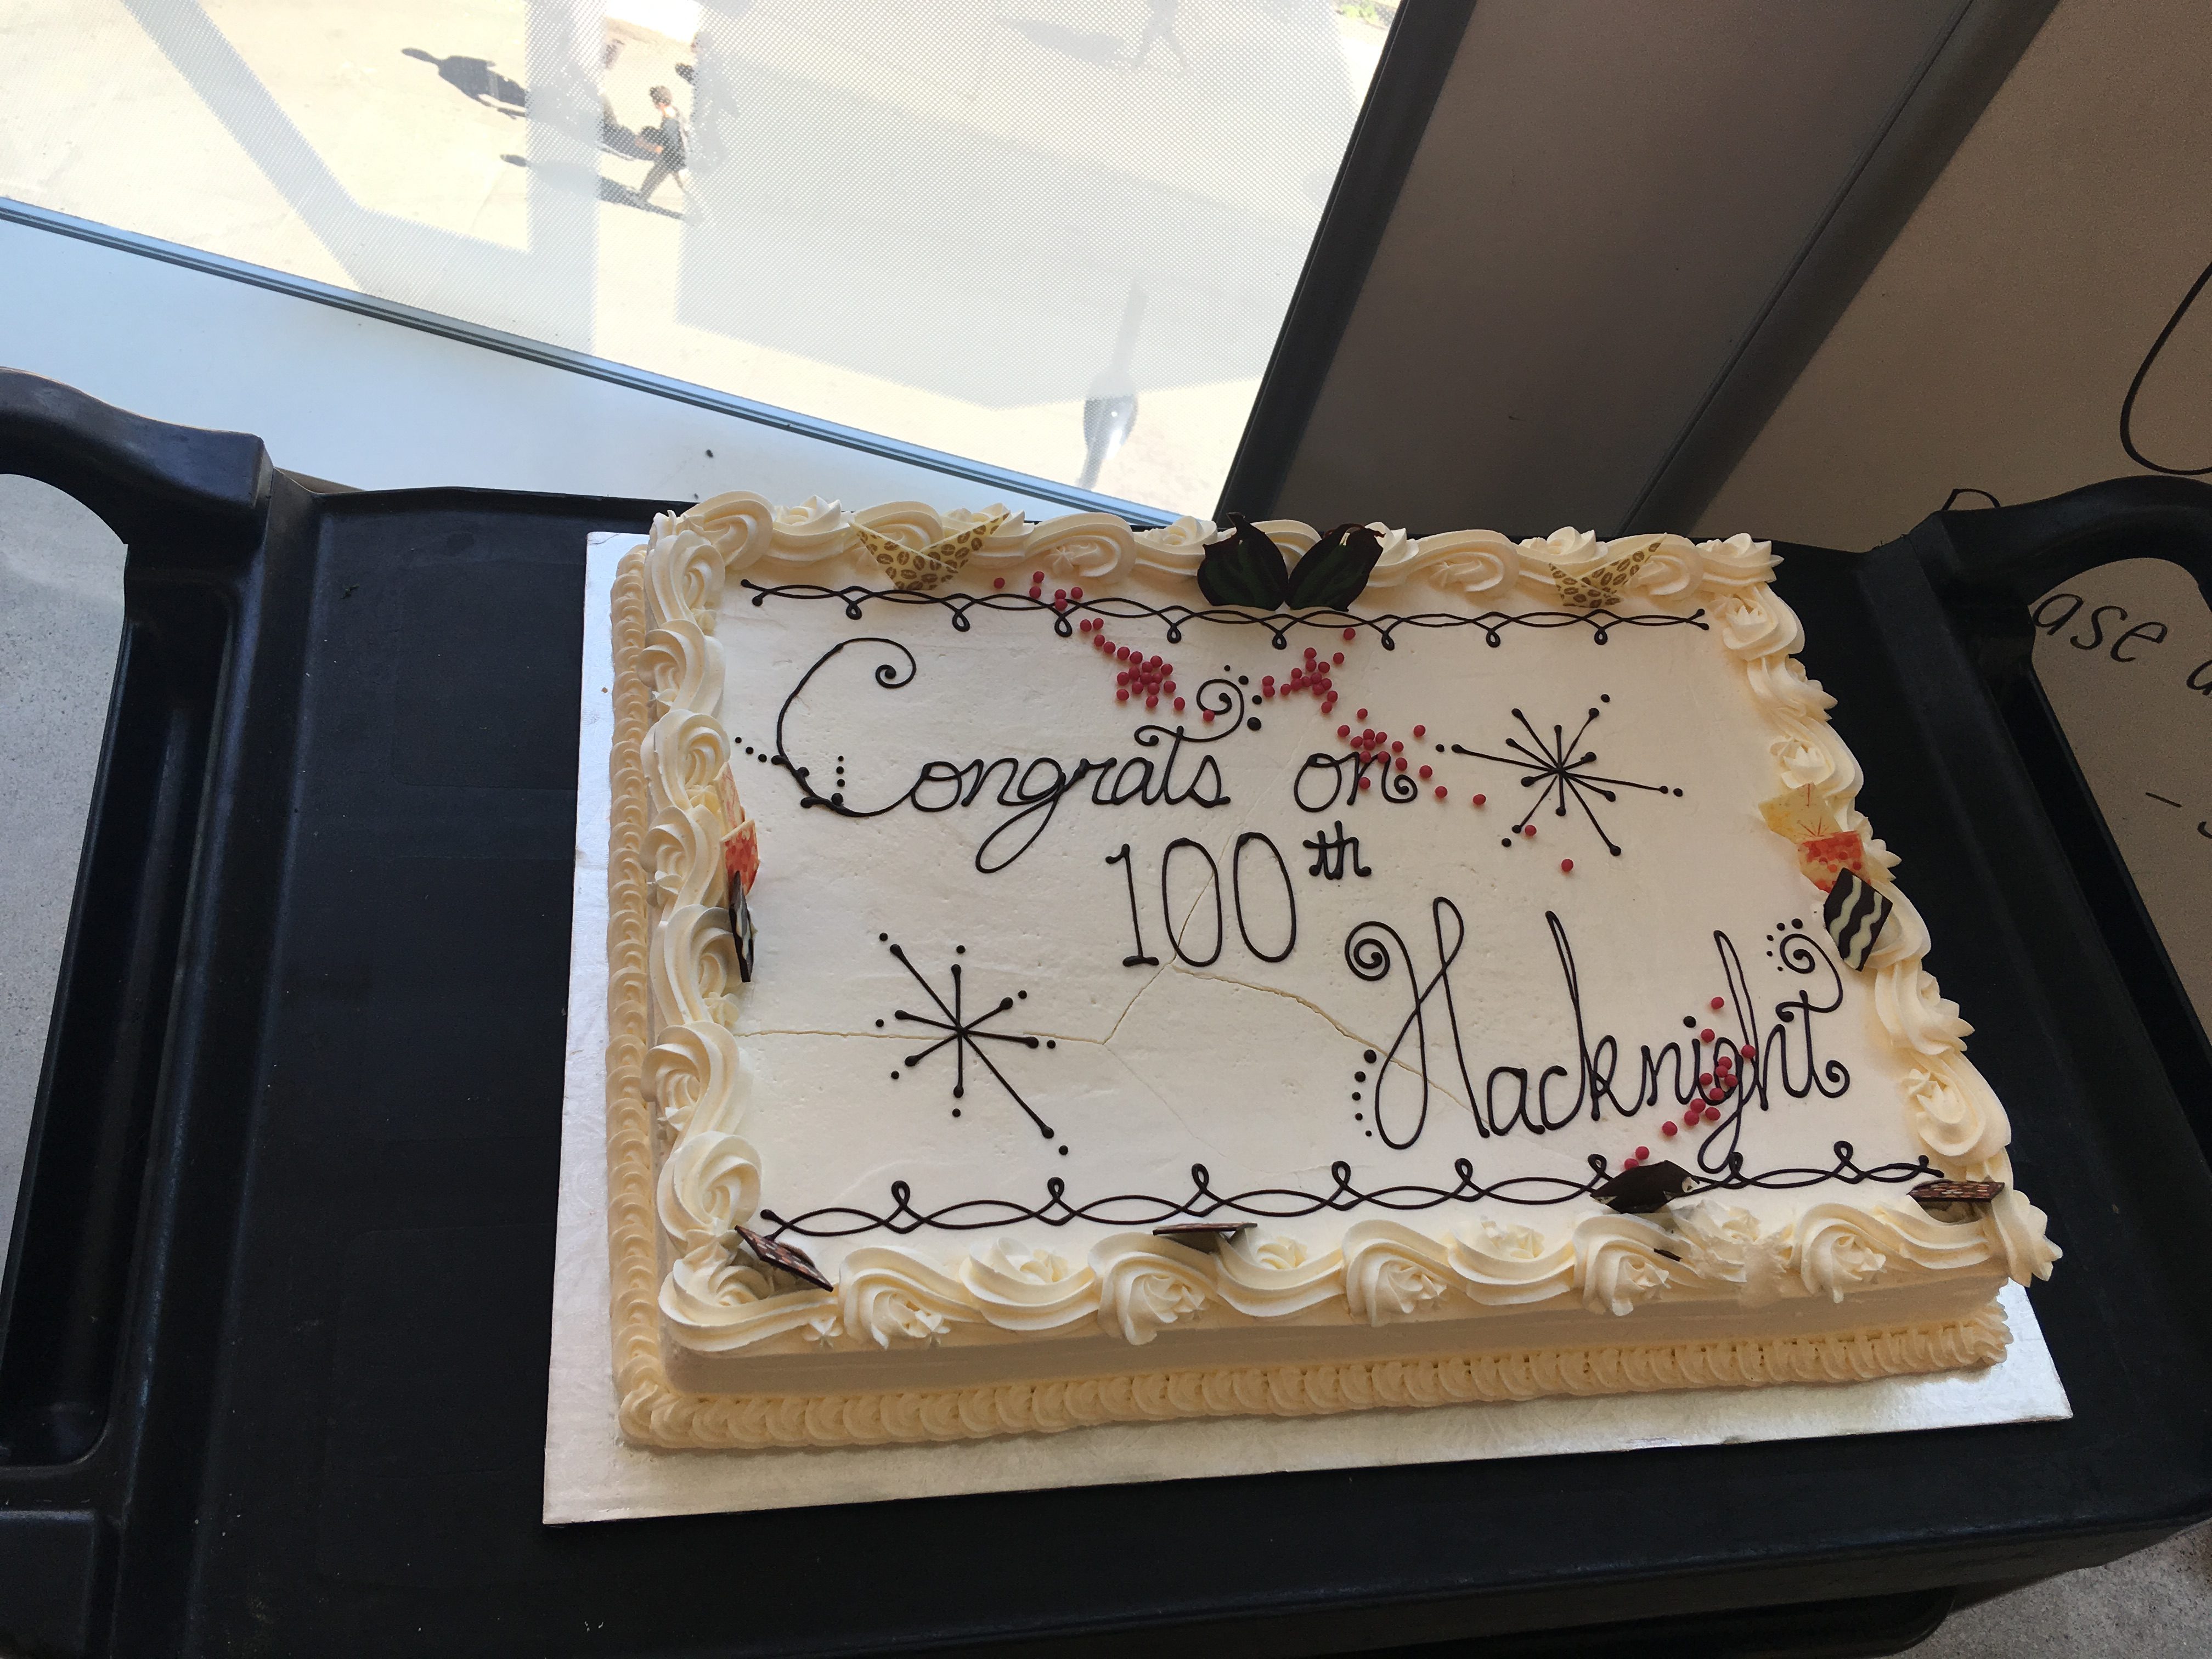 Congrats on
100th
Hacknight